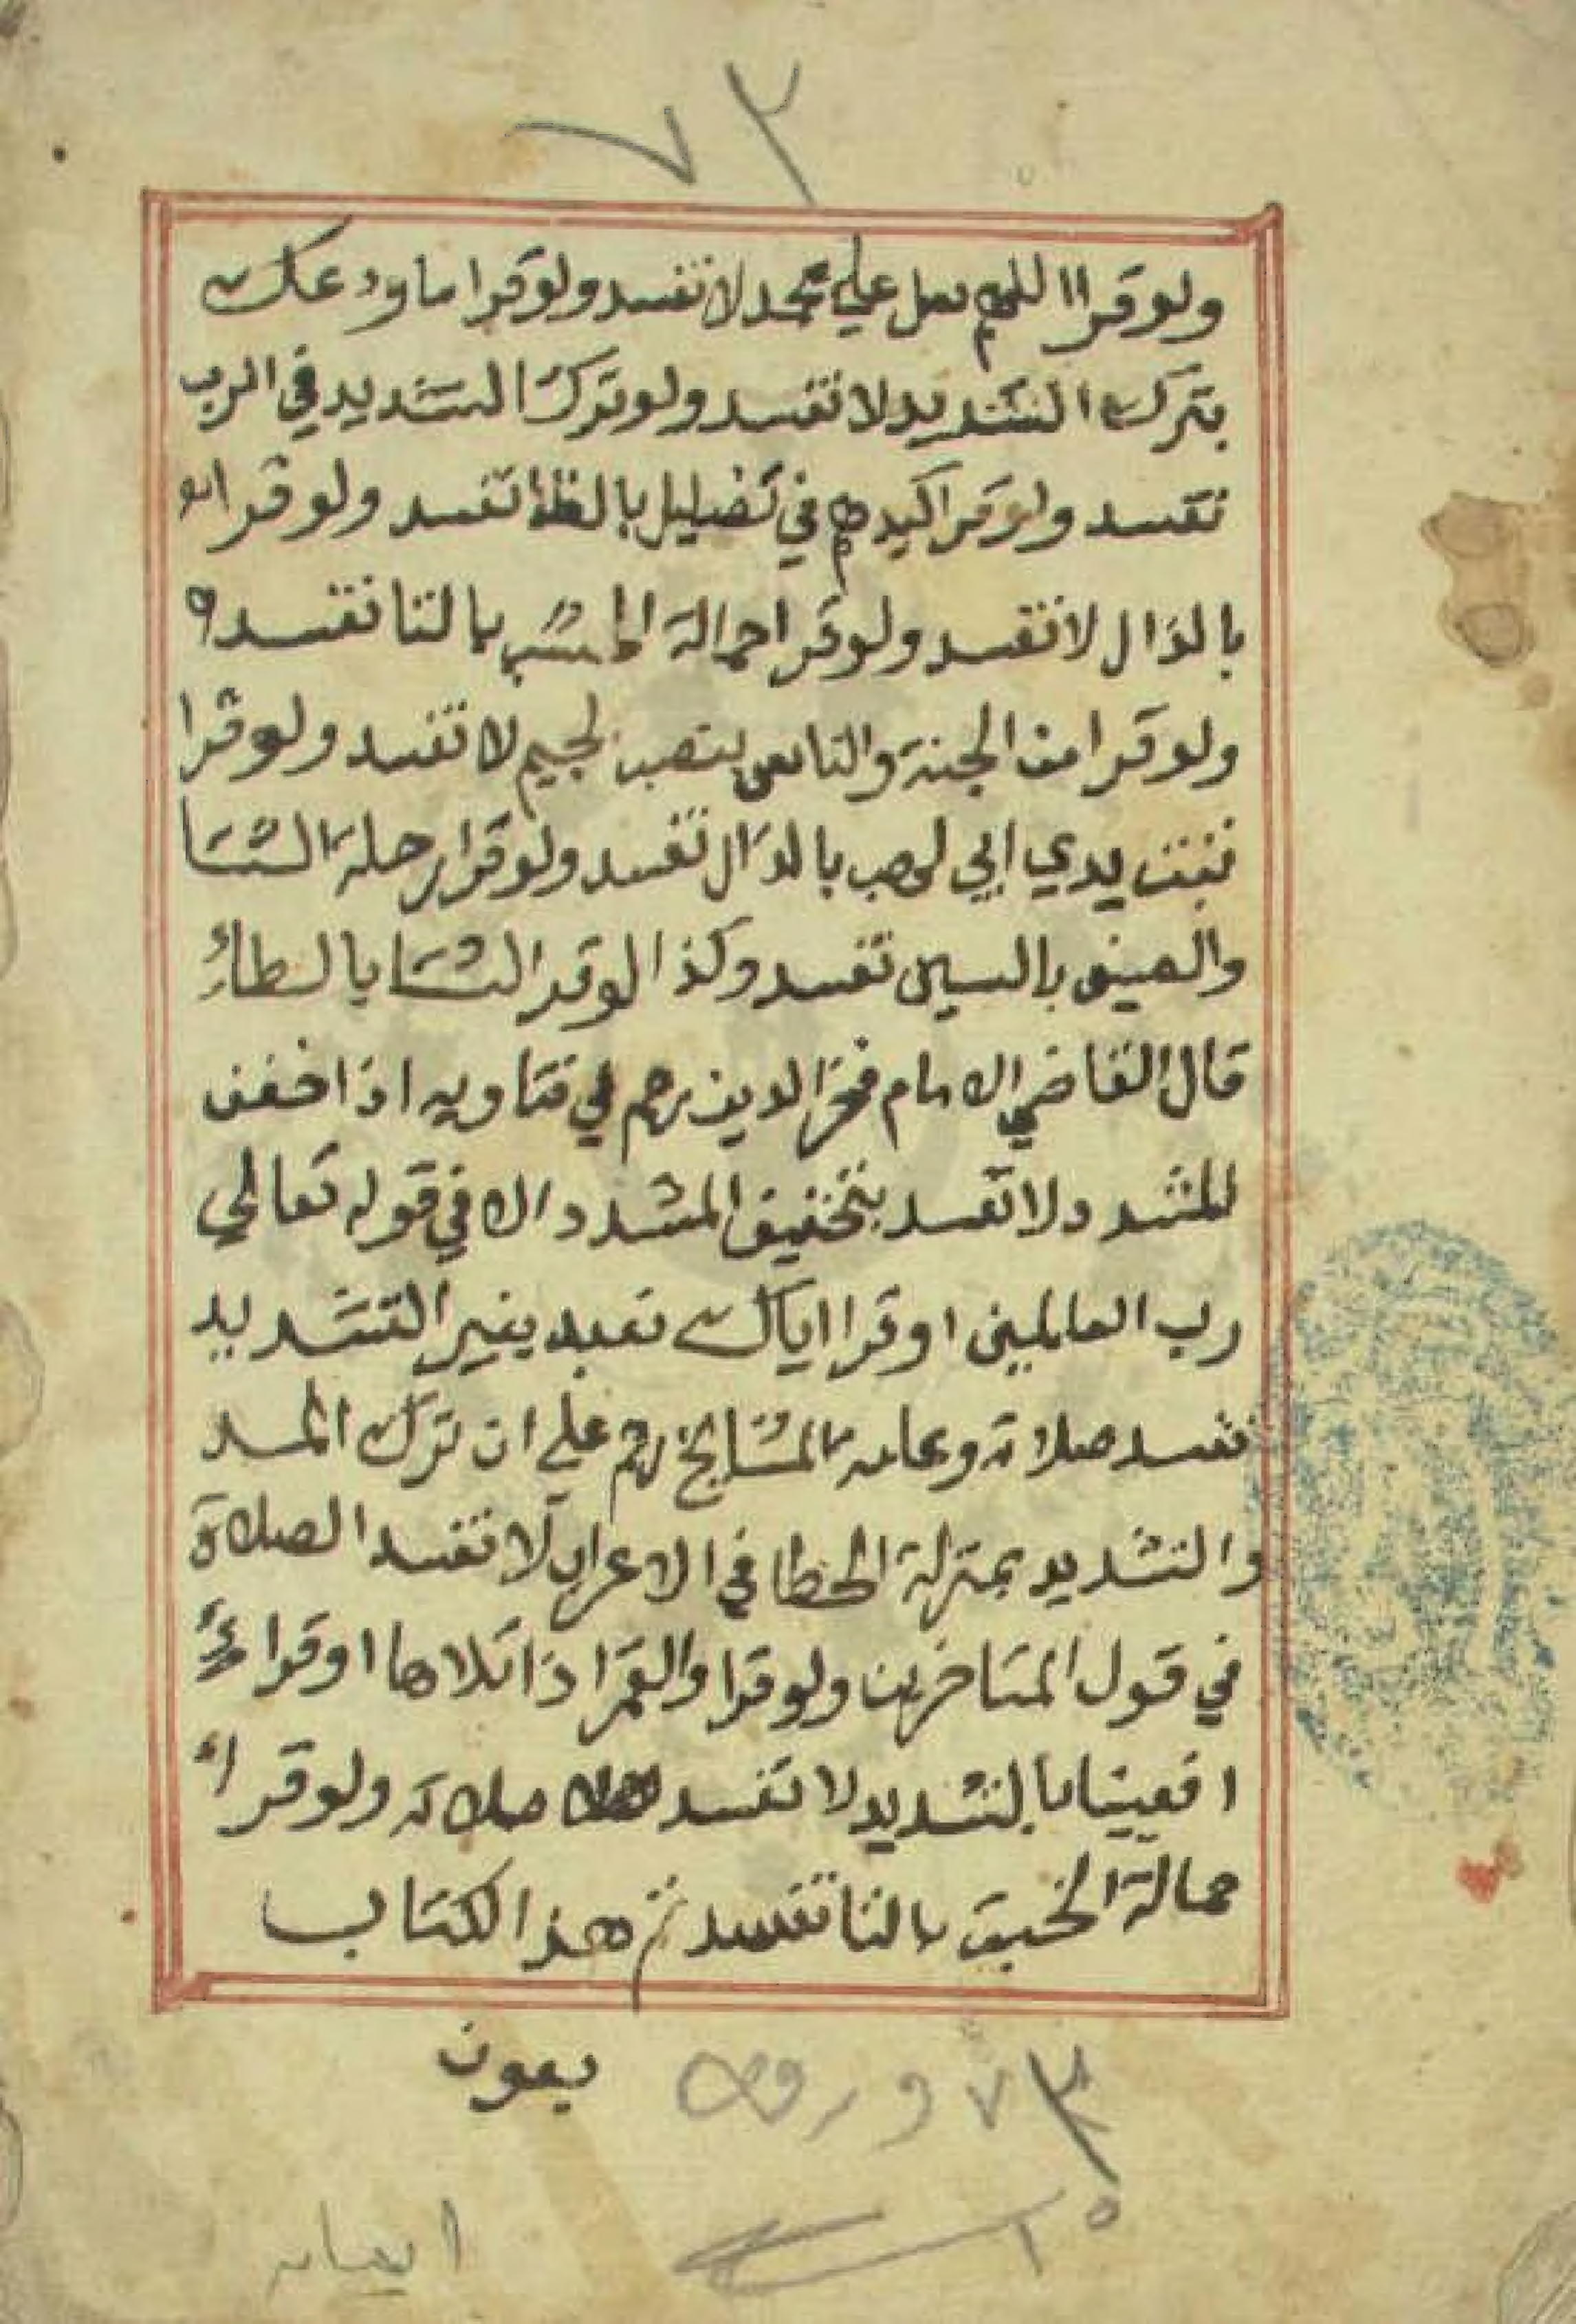 ٧٣
ولو قرا اللهم صل علي محمد لا تفسد ولو قرا ما ودعك
بترك التشديد لا تفسد ولو ترك التشديد في الرب
تفسد ولو قرا كيدهم في تضليل بالظا تفسد ولو قرا
بالذال لا تفسد ولو قرا حمالة بالتا تفسد
ولو قرا من الجنة والناس بنصب لجيم لا تفسد ولو قرا
تبت يدي ابي لهب بالدال تفسد ولو قرا رحلة الشتا
والصيف بالسين تفسد وكذا لو قرا الشتا بالطاء
قال القاضي الامام فخر الدين رحم في فتاويه اذا خفف
المشدد لا تفسد بتخفيف المشدد الا في قوله تعالي
رب العالمين او قرا اياك نعبد بغير التشديد
تفسد صلاته وعامة المشايخ رحم علي ان ترك المد
والتشديد بمنزلة الخطا في الاعراب لا تفسد الصلاة
في قول المتاخرين ولو قرا والقمر اذا تلاها او قراء
افعيينا بالتشديد لا تفسد صلاته ولو قراء
حمالة الخبت بالتا تفسد تم هذا الكتاب
بعون
٧٣ ورقه